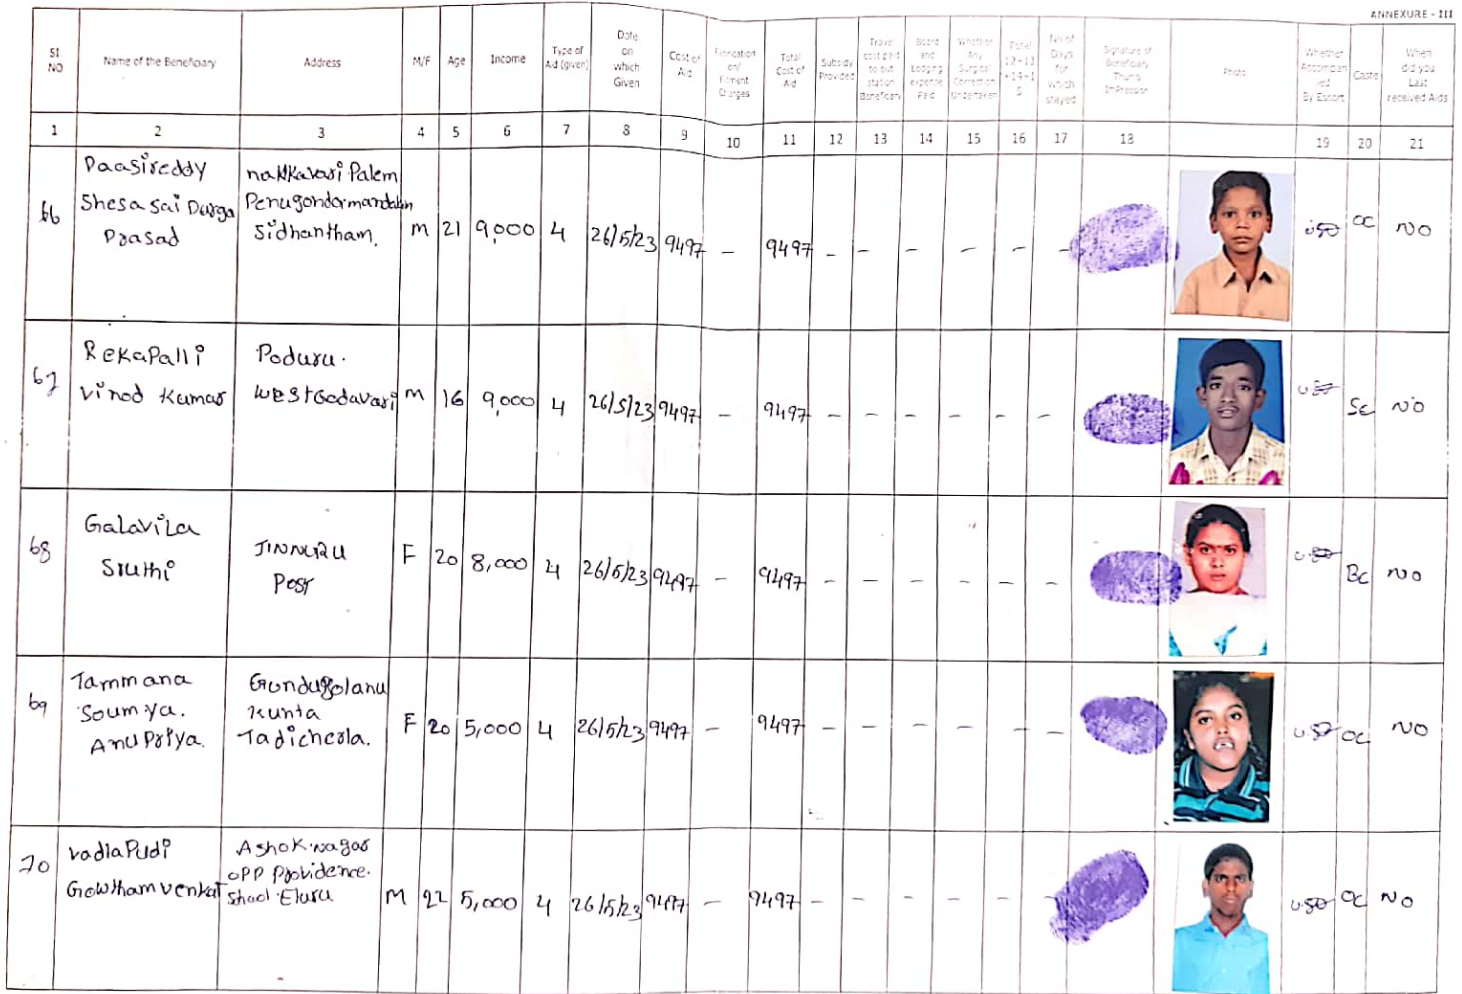 ANNEXURE - III
SI NO
Name of the Beneficiary
Address
M/F
Age
Income
Type of Aid (given)
Date on which Given
Cost of Aid
Fabrication on/ Fitment Charges
Total Cost of Aid
Subsidy Provided
Travel cost paid to out station Beneficiary
Board and Lodging expense Paid
Whether Any Surgical Correction Undertaken
Total 12+13 +14+1 5
No of Days for which stayed
Signature of Beneficiary Thumb Impression
Photo
Whether Accompan ied By Escort
Caste
When did you Last received Aids
1 2 3 4 5 6 7 8 9 10 11 12 13 14 15 16 17 18 19 20 21
66
Daasireddy
Shesa sai Durga
Prasad
nakkavari Palem
Penugondamandalam
Sidhantham.
M 21 9,000 4 26/5/23 9497 – 9497 – – – – – – OC NO
67
Rekapalli
Vinod Kumar
Poduru.
West Godavari
M 16 9,000 4 26/5/23 9497 – 9497 – – – – – – SC NO
68
Galavilla
Sruthi
JINNURU
Post
F 20 8,000 4 26/5/23 9497 – 9497 – – – – – – BC NO
69
Tammana
Soumya.
Anupriya.
Gundugolanu
Kunta
Tadicherla.
F 20 5,000 4 26/5/23 9497 – 9497 – – – – – – OC NO
70
Vadlapudi
Gowtham Venkat
Ashok nagar
OPP Providence.
Shool Eluru
M 22 5,000 4 26/5/23 9497 – 9497 – – – – – – OC NO